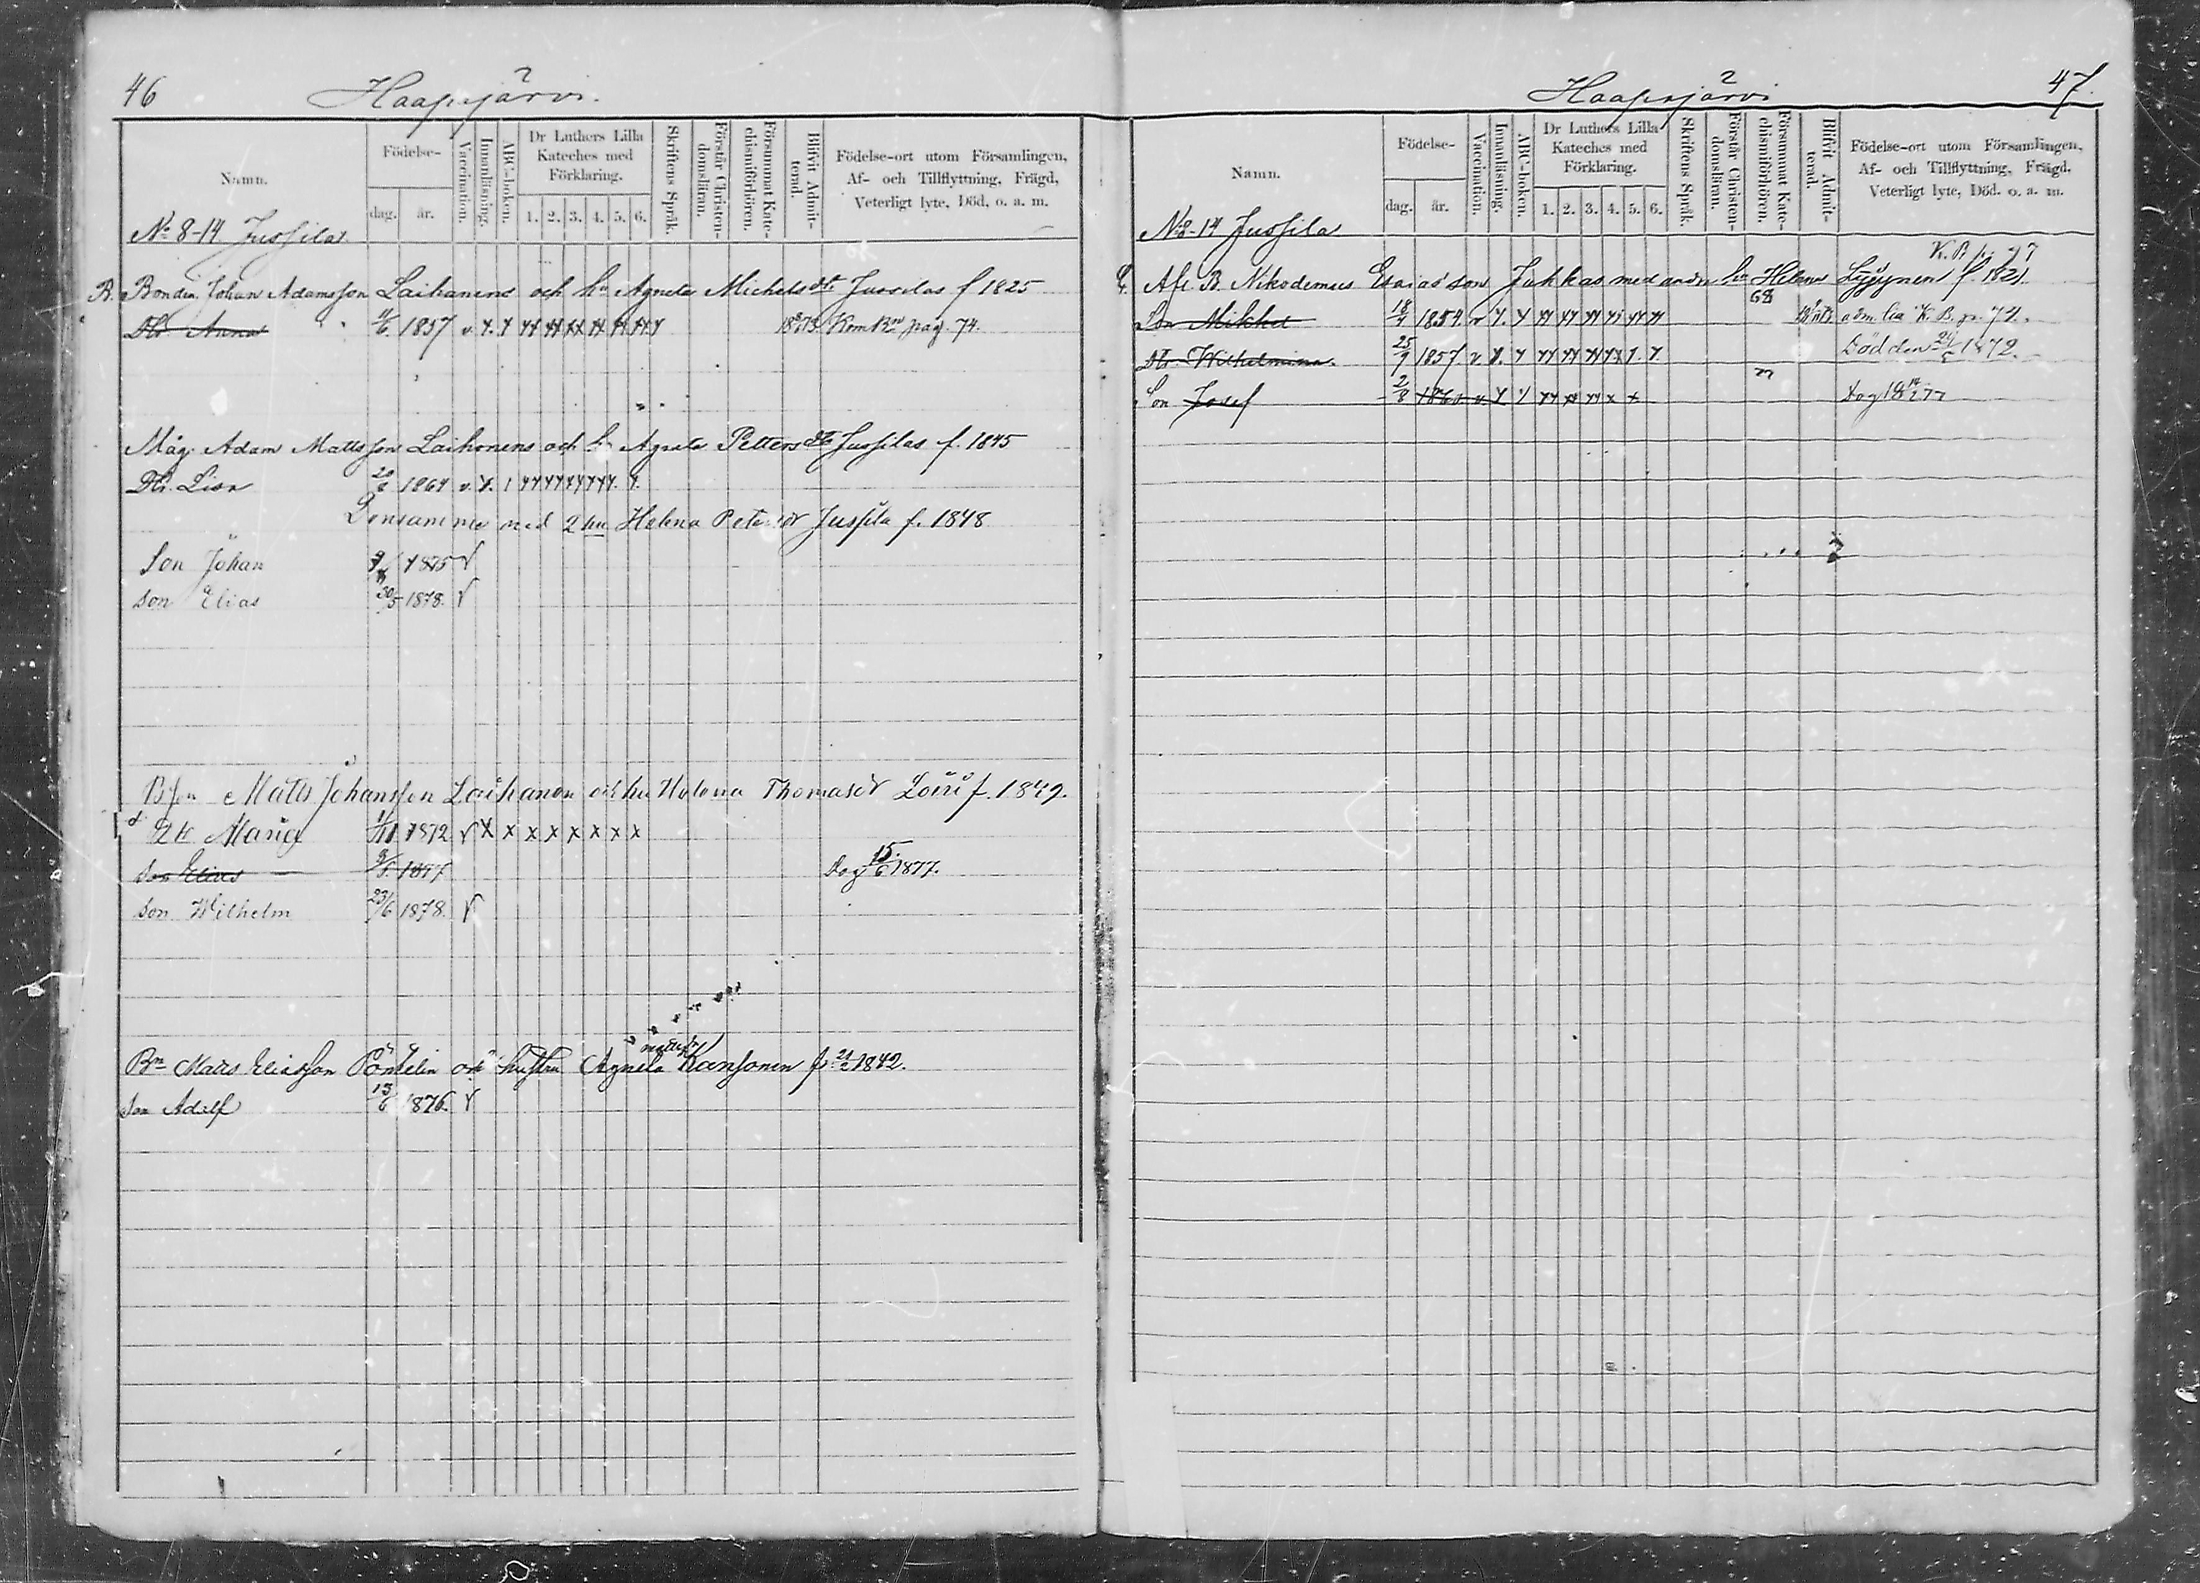 46
Haapajärvi. 2
Namn.
Födelse-
dag. år.
Vaccination.
Innanläsning.
ABC-boken.
Dr Luthers Lilla Kateches med Förklaring.
1. 2. 3. 4. 5. 6.
Skriftens Språk.
Förstår Christendomsläran.
Försummat Katechismiförhören.
Blifvit Admitterad.
Födelse-ort utom Församlingen,
Af- och Tillflyttning, Frägd,
Veterligt lyte, Död, o. a. m.
No 8-14 Jussila
B. Bonden Johan Adamsson Laihanens och hu Agneta Michelsdtr Jussilas f 1825
Dtr Anna 1857 v. 1873 Kom Kbn pag. 74.
Måg Adam Mattsson Laihonens och h. Agneta Petters dtr Jussilas f. 1845
Dtr. Lisa 20/8 1864 v.
Densamme med 2 hu Helena Petersdr Jussila f. 1848
Son Johan 1875 v
Son Elias 30/5 1878. v
Bson Matts Johansson Laihanen och hu Helena Thomasdr f. 1849.
Dtr Maria 1872 v x x x x x x x x
Son Elias 1877 Dog 15/6 1877.
Son Wilhelm 23/6 1878. v
Bn Matts Eliasson Pöntelin och hustru Agneta Kansonen f. 21/2 1842.
Son Adolf 13/6 1876. v
Haapajärvi 2
47.
Namn.
Födelse-
dag. år.
Vaccination.
Innanläsning.
ABC-boken.
Dr Luthers Lilla Kateches med Förklaring.
1. 2. 3. 4. 5. 6.
Skriftens Språk.
Förstår Christendomsläran.
Försummat Katechismiförhören.
Blifvit Admitterad.
Födelse-ort utom Församlingen,
Af- och Tillflyttning, Frägd,
Veterligt lyte, Död. o. a. m.
No 8-14 Jussila
K. B. p. 77
Afl. B. Nikodemus Esaiasson Juhkas med andra hu Helena Lyijynen f. 1821.
68
Son Mikhel 18/4 1854. v K. B. p. 72.
Dtr. Wilhelmina. 25/9 1857. v. Död den 1872.
Son Josef 2/8 v Dog 1877